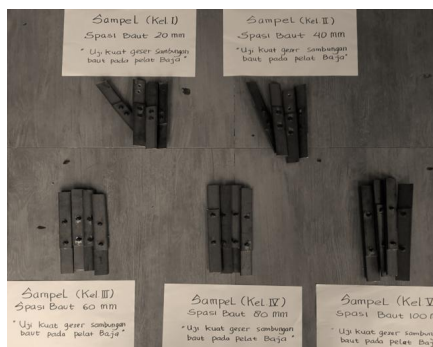 Sampel (Kel I)
Spasi Baut 20 mm
"Uji kuat geser sambungan
baut pada pelat Baja"
Sampel (Kel II)
Spasi Baut 40 mm
"Uji kuat geser sambungan
baut pada pelat Baja"
Sampel (Kel III)
Spasi Baut 60 mm
"Uji kuat geser sambungan
baut pada pelat Baja"
Sampel (Kel IV)
Spasi Baut 80 mm
"Uji kuat geser sambungan
baut pada pelat Baja"
Sampel (Kel V
Spasi Baut 100 m
"Uji kuat geser sambun
baut pada pelat Baj